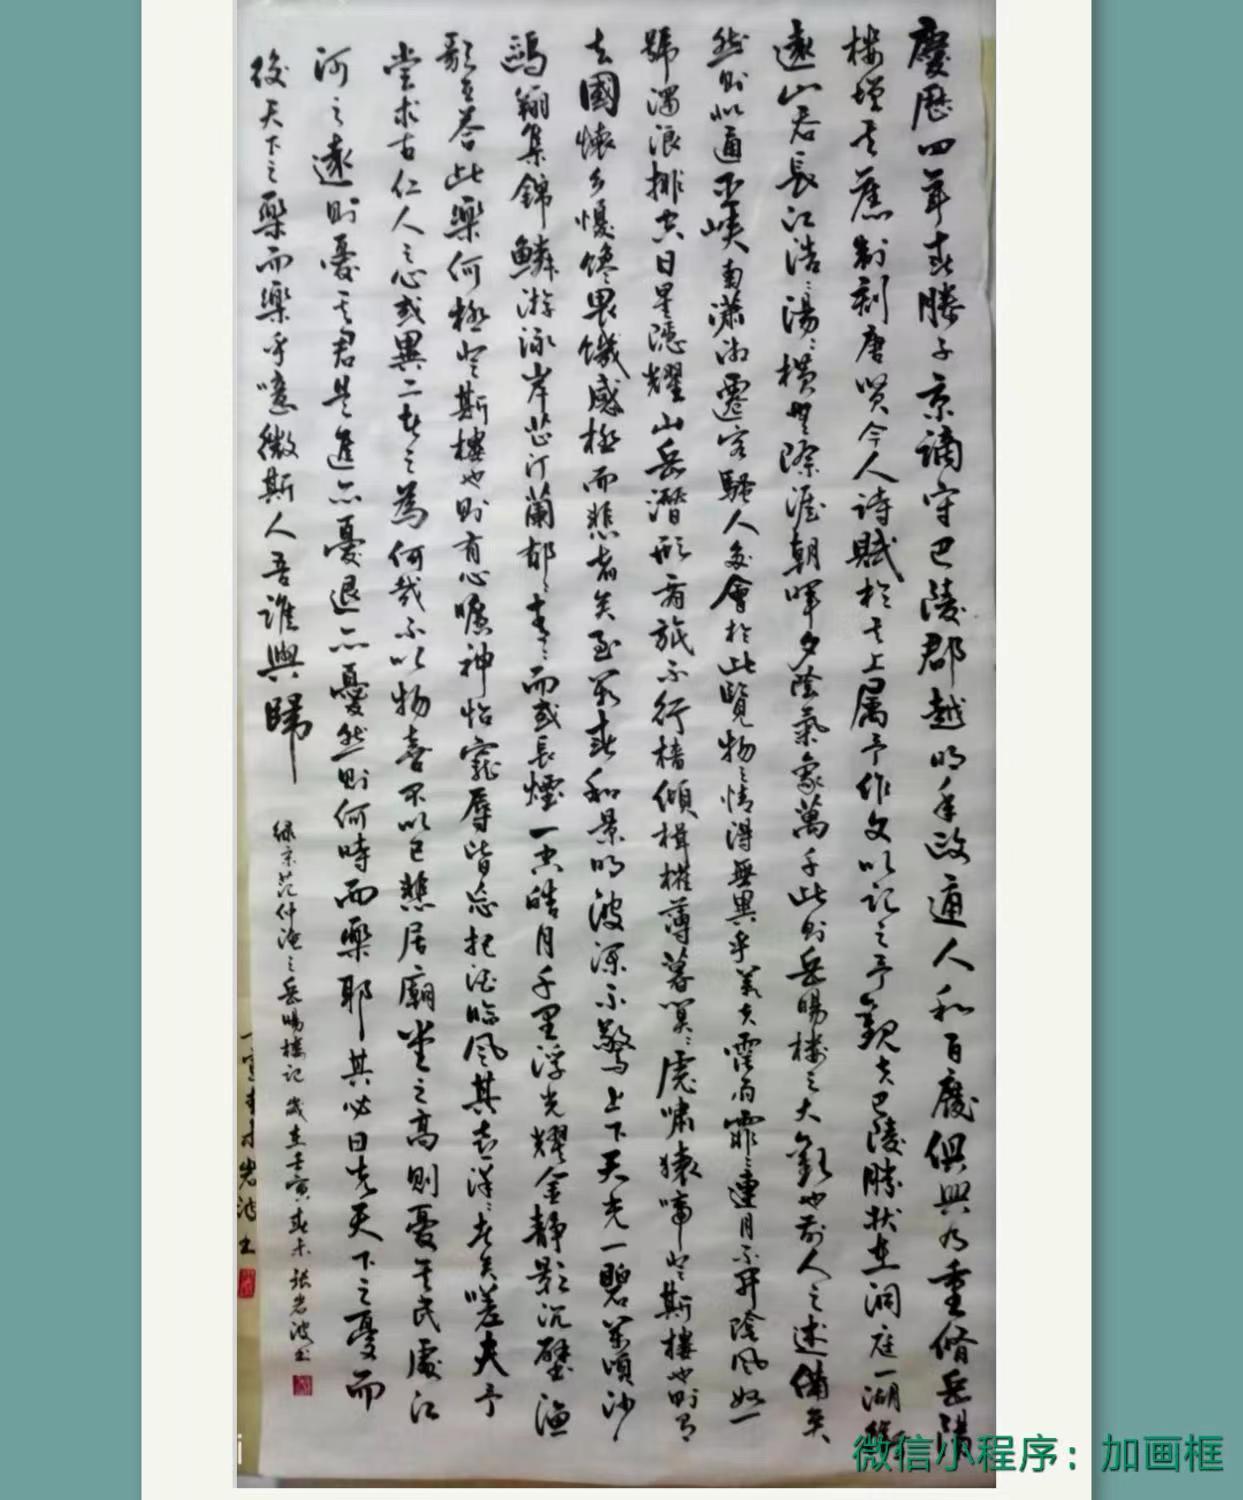 慶歷四年春滕子京謫守巴陵郡越明年政通人和百廢俱興乃重脩岳陽
樓增其舊制刻唐賢今人詩賦於其上屬予作文以記之予觀夫巴陵勝狀在洞庭一湖銜
遠山吞長江浩浩湯湯橫無際涯朝暉夕陰氣象萬千此則岳陽樓之大觀也前人之述備矣
然則北通巫峽南瀟湘遷客騷人多會於此覽物之情得無異乎若夫霪雨霏霏連月不開陰風怒
號濁浪排空日星隱耀山岳潛形商旅不行檣傾楫摧薄暮冥冥虎嘯猿啼登斯樓也則有
去國懷鄉憂讒畏譏感極而悲者矣至若春和景明波瀾不驚上下天光一碧萬頃沙
鷗翔集錦鱗游泳岸芷汀蘭郁郁青青而或長煙一空皓月千里浮光耀金靜影沉璧漁
歌互答此樂何極登斯樓也則有心曠神怡寵辱皆忘把酒臨風其喜洋洋者矣嗟夫予
嘗求古仁人之心或異二者之為何哉不以物喜不以己悲居廟堂之高則憂其民處江
河之遠則憂其君是進亦憂退亦憂然則何時而樂耶其必曰先天下之憂而
後天下之樂而樂乎噫微斯人吾誰與歸
錄宋范仲淹之岳陽樓記 歲在壬寅春末張岩波書
岩波書
微信小程序：加画框